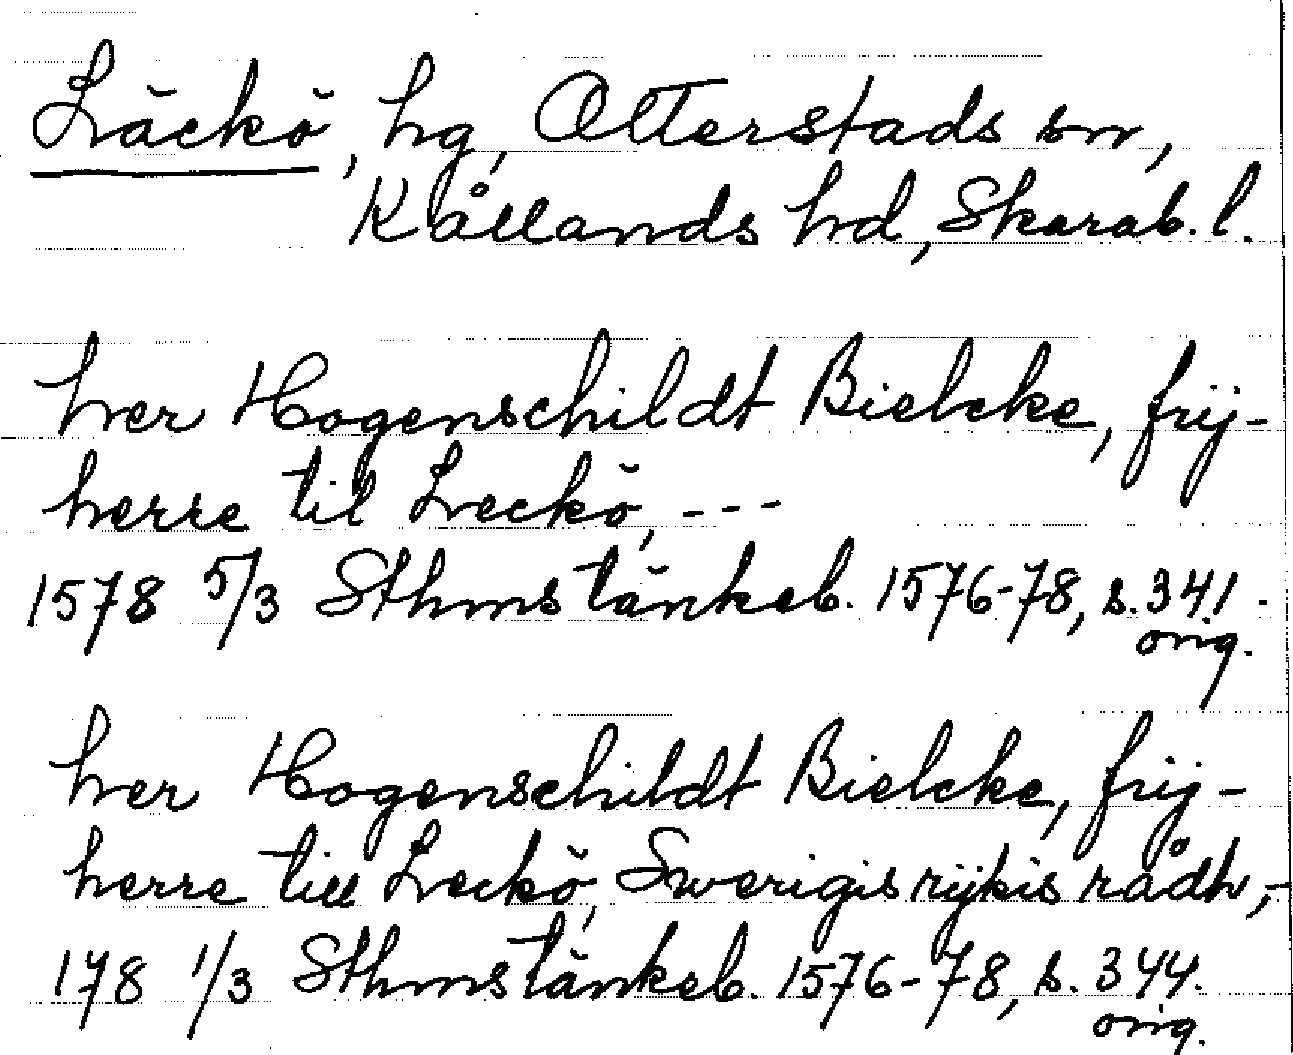 Läckö, hg, Otterstads sn,
Kållands hd, Skarab. l.
her Hogenschildt Bielcke, frij-
herre til Leckö, ---
1578 5/3 Sthms tänkeb. 1576-78, s. 341.
orig.
her Hogenschildt Bielcke, frij-
herre till Leckö, Swerigis rijkis rådh, -
178 1/3 Sthms tänkeb. 1576-78, s. 344.
orig.